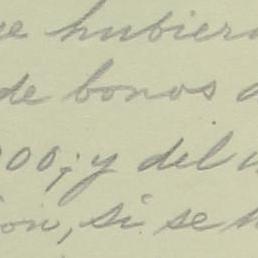 ue hubiera
de bonos d
000; y del
ion, si se h